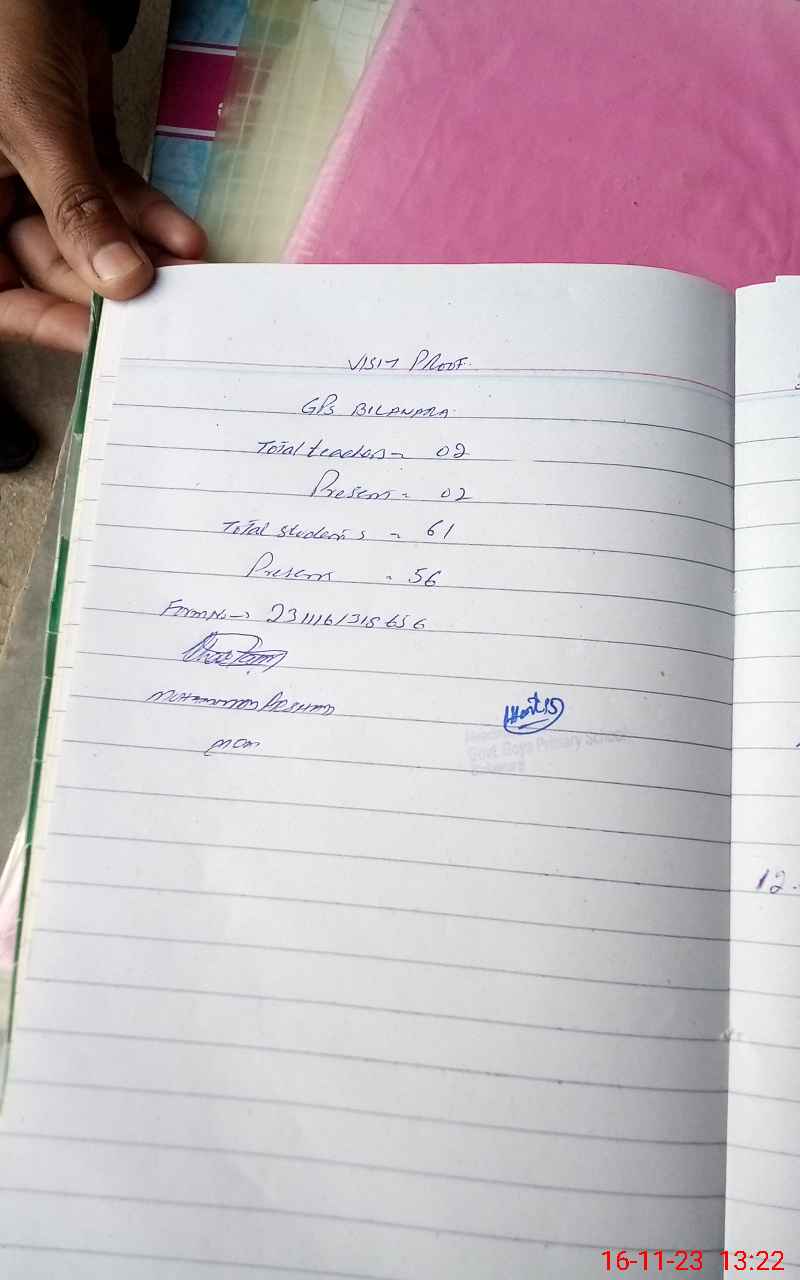 VISIT PROOF.
GPS BILANARA
Total teachers - 02
Present - 02
Total students - 61
Present - 56
Form No -> 2311161318656
MUHAMMAD ARSHAD
MCM
Govt. Boys Primary School
12
16-11-23 13:22